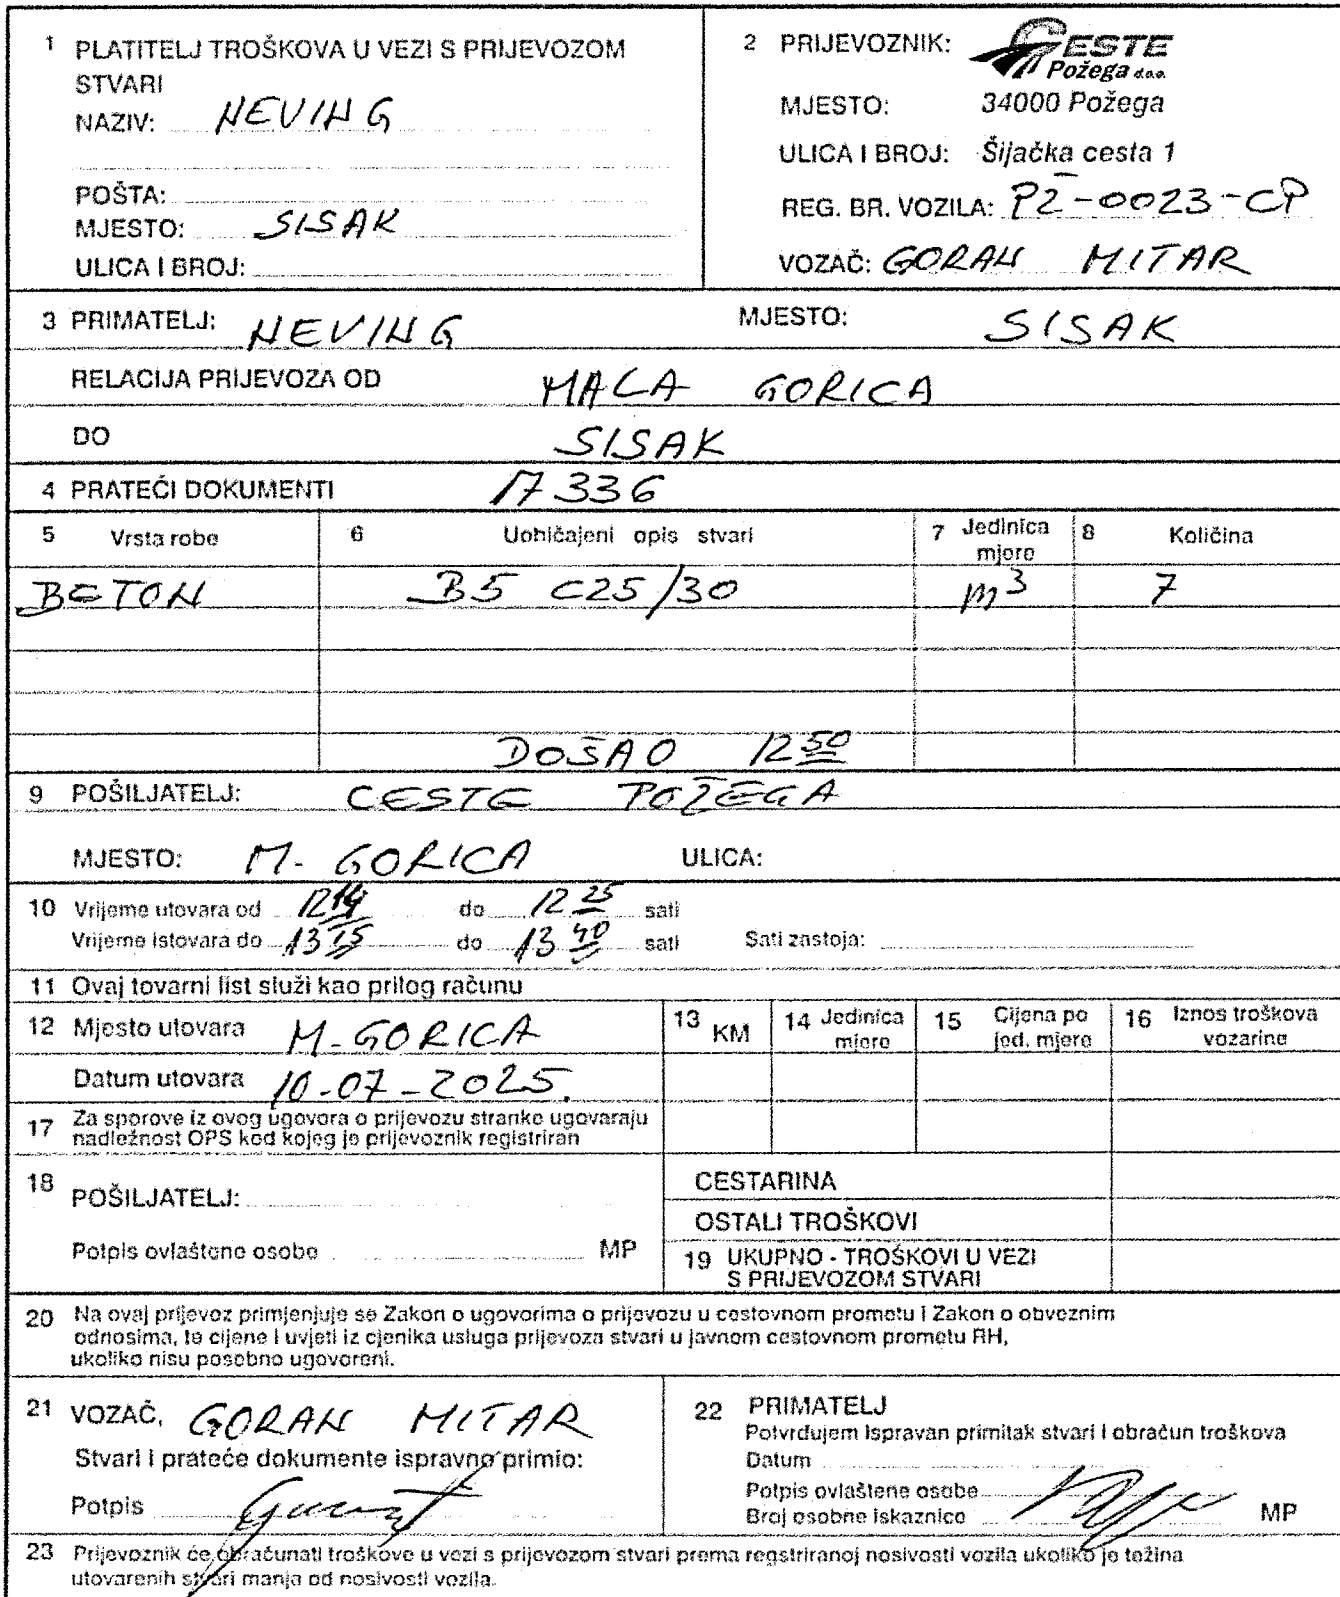 1 PLATITELJ TROŠKOVA U VEZI S PRIJEVOZOM
STVARI
NAZIV: NEVING
POŠTA:
MJESTO: SISAK
ULICA I BROJ:
2 PRIJEVOZNIK: CESTE
Požega d.o.o.
MJESTO: 34000 Požega
ULICA I BROJ: Šijačka cesta 1
REG. BR. VOZILA: PŽ-0023-CP
VOZAČ: GORAN MITAR
3 PRIMATELJ: NEVING MJESTO: SISAK
RELACIJA PRIJEVOZA OD MALA GORICA
DO SISAK
4 PRATEĆI DOKUMENTI 17336
5 Vrsta robe 6 Uobičajeni opis stvari 7 Jedinica mjere 8 Količina
BETON B5 C25/30 m3 7
DOŠAO 12 50
9 POŠILJATELJ: CESTE POŽEGA
MJESTO: M. GORICA ULICA:
10 Vrijeme utovara od 12 14 do 12 25 sati
Vrijeme istovara do 13 15 do 13 40 sati Sati zastoja:
11 Ovaj tovarni list služi kao prilog računu
12 Mjesto utovara M-GORICA
Datum utovara 10-07-2025.
13 KM 14 Jedinica mjere 15 Cijena po jed. mjere 16 Iznos troškova vozarine
17 Za sporove iz ovog ugovora o prijevozu stranke ugovaraju
nadležnost OPS kod kojeg je prijevoznik registriran
18 POŠILJATELJ:
Potpis ovlaštene osobe MP
CESTARINA
OSTALI TROŠKOVI
19 UKUPNO - TROŠKOVI U VEZI
S PRIJEVOZOM STVARI
20 Na ovaj prijevoz primjenjuje se Zakon o ugovorima o prijevozu u cestovnom prometu i Zakon o obveznim
odnosima, te cijene i uvjeti iz cjenika usluga prijevoza stvari u javnom cestovnom prometu RH,
ukoliko nisu posebno ugovoreni.
21 VOZAČ, GORAN MITAR
Stvari i prateće dokumente ispravno primio:
Potpis
22 PRIMATELJ
Potvrdujem ispravan primitak stvari i obračun troškova
Datum
Potpis ovlaštene osobe
Broj osobne iskaznice MP
23 Prijevoznik će obračunati troškove u vezi s prijevozom stvari prema regstriranoj nosivosti vozila ukoliko je težina
utovarenih stvari manja od nosivosti vozila.